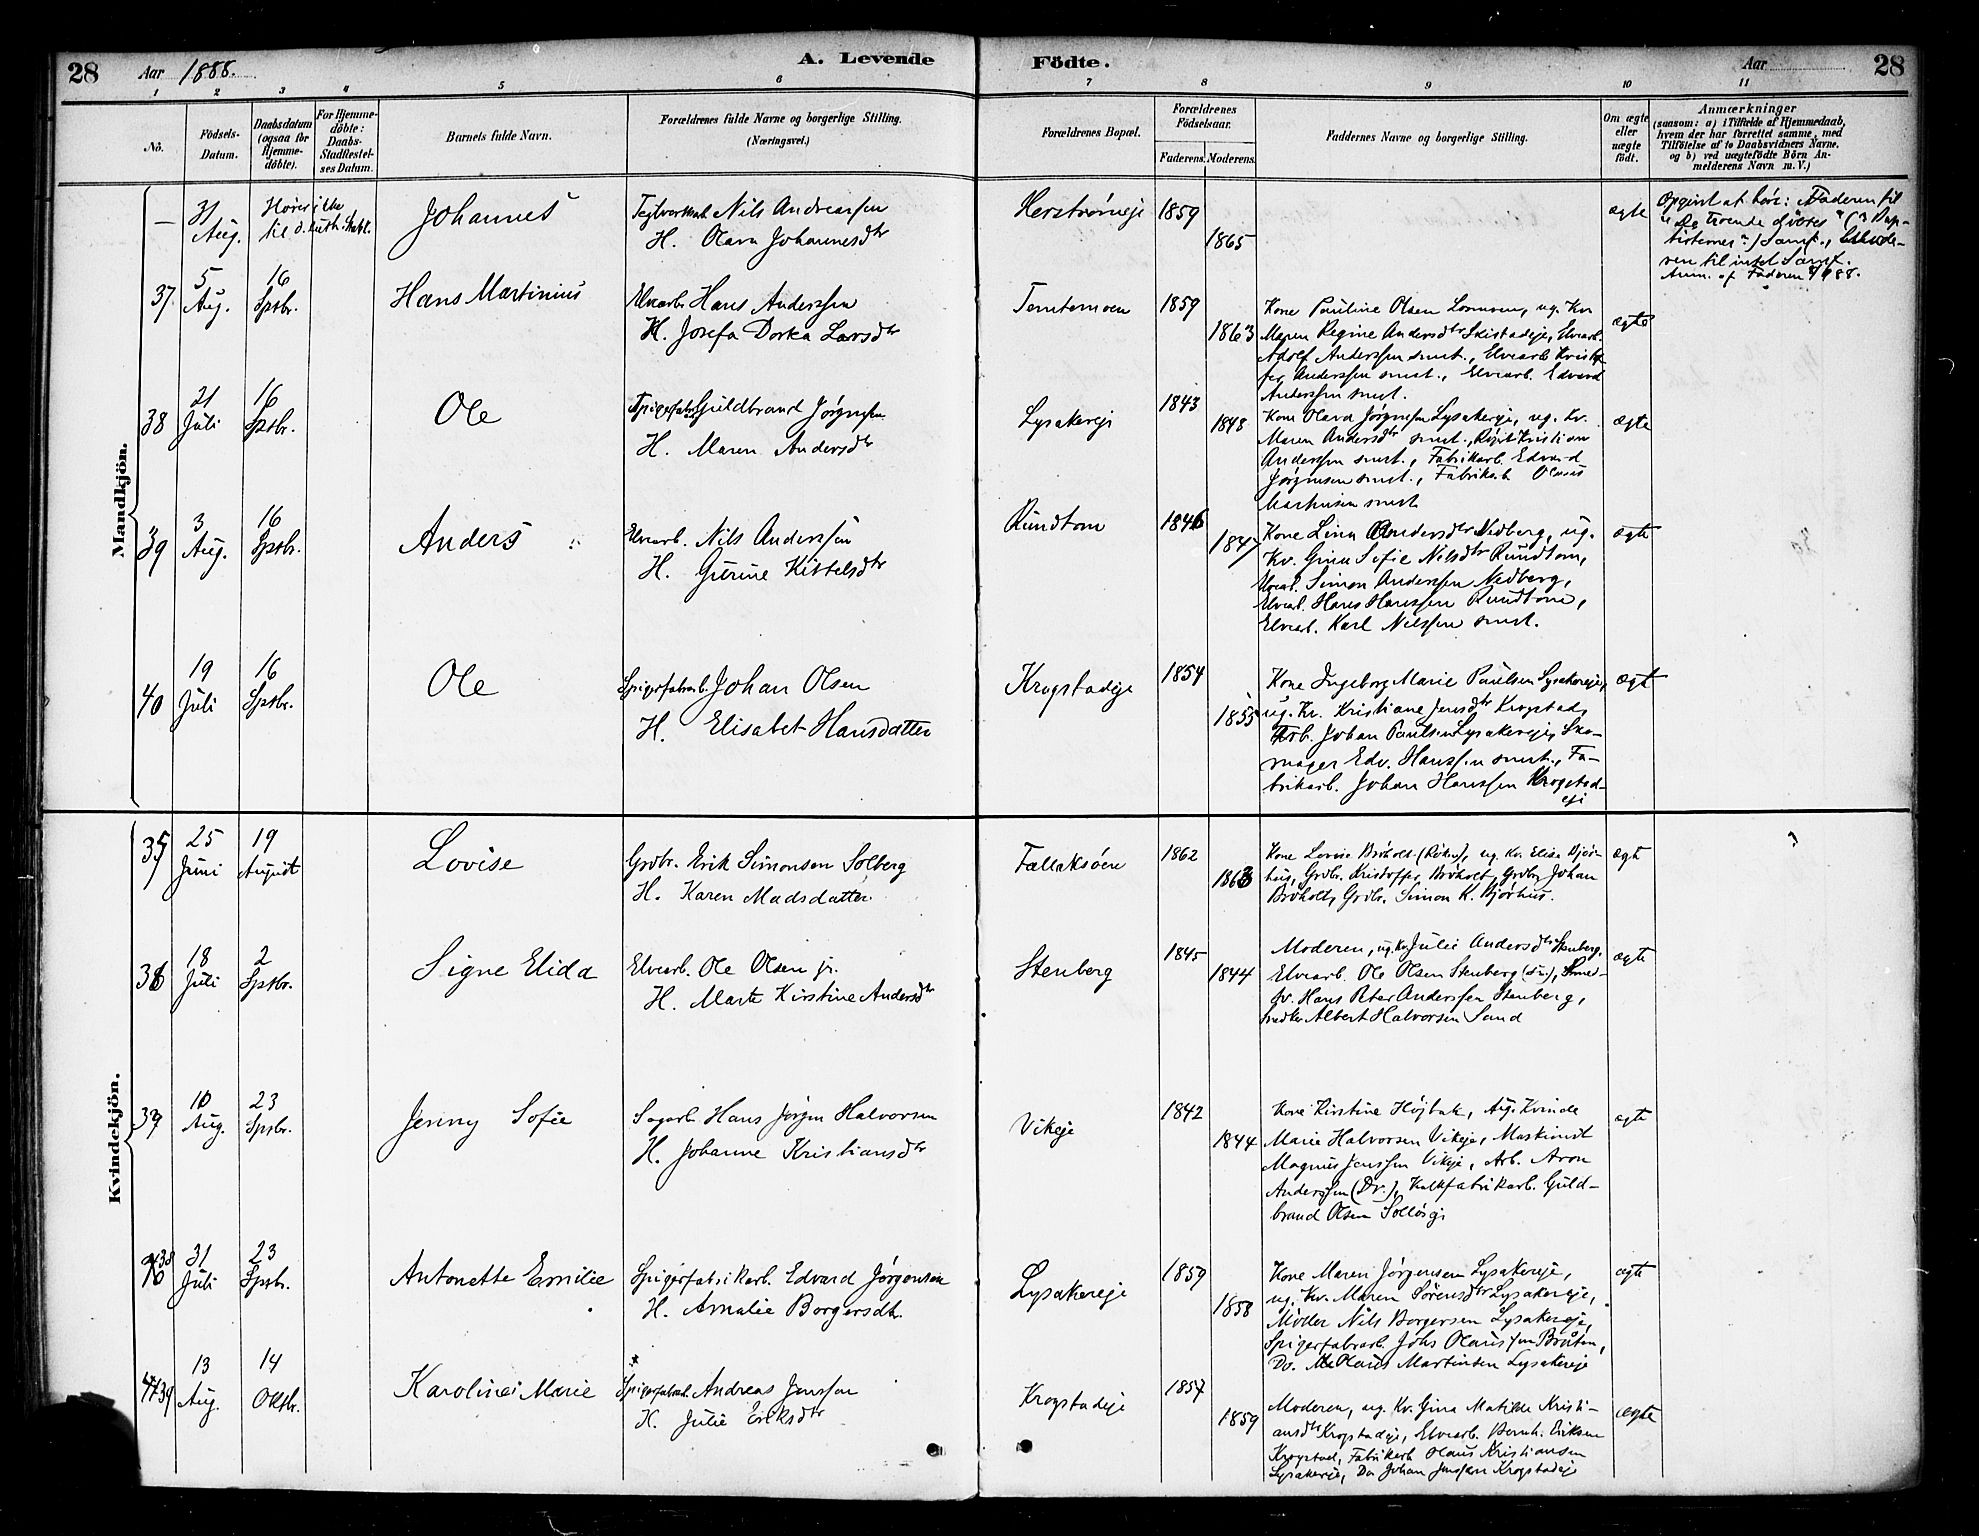 28 Aar 1888. A. Levende Födte. Aar 28
1 2 3 4 5 6 7 8 9 10 11
Nô. Födsels-Datum. Daabsdatum (ogsaa for Hjemmedöbte). For Hjemmedöbte: Daabs-Stadfestelses Datum. Barnets fulde Navn. Forældrenes fulde Navne og borgerlige Stilling. (Næringsvei.) Forældrenes Bopæl. Forældrenes Födselsaar. Faderens. Moderens. Faddernes Navne og borgerlige Stilling. Om ægte eller uægte födt. Anmærkninger (saasom: a) i Tilfælde af Hjemmedaab, hvem der har forrettet samme, med Tilföielse af to Daabsvidners Navne, og b) ved uægtefödte Börn Anmelderens Navn m. V.)
Mandkjön.
— 31 Aug. Hører ikke til d. luth. Johannes
Nils Andreassen
H. Olava Johannesdtr
1859
1865
ægte
Opgivet at høre: Faderen til
troende
Samf.
ven til intet Samf.
Anm. af Faderen
37. 5 Aug. 16 Sptbr. Hans Martinius
Elvearb. Hans Anderssen
H. Josefa Dorka Larsdtr
Temtemoen
1859
1863
Kone Pauline Olsen ug. Kv
Maren Regine Andersdtr Elvearb.
Adolf Anderssen smst., Elvearb. Kristof-
fer Anderssen smst., Elvearb. Edvard
Anderssen smst.
ægte
38 21 Juli 16 Sptbr. Ole
Spigerfabr. Guldbrand Jørgensen
H. Maren Andersdtr
Lysakereje
1843
1848
Kone Olava Jørgensen Lysakereje, ug. Kv.
Maren Andersdtr smst., Kristian
Anderssen smst., Fabrikarb. Edvard
Jørgensen smst., Fabrikarb Olaus
Martinsen smst
ægte
39 3 Aug. 16 Sptbr. Anders
Elvearb. Nils Anderssen
H. Gurine Kittelsdtr
Rundtom
1846
1847
Kone Lina Andersdtr Nedberg, ug.
Kv. Gina Sofie Nilsdtr Rundtom,
Elvearb. Simon Anderssen Nedberg,
Elvearb. Hans Hanssen Rundtom,
Elvearb. Karl Nilssen smst.
ægte
40 19 Juli 16 Sptbr. Ole
Spigerfabrarb. Johan Olsen
H. Elisabet Hansdatter
Krogstadeje
1854
1855
Kone Ingeborg Marie Paulsen Lysakereje,
ug. Kv. Kristiane Jensdtr Krogstad,
Arb. Johan Paulsen Lysakereje, Sko-
mager Edv. Hanssen smst., Fa-
brikarb. Johan Hanssen Krogstad-
eje
ægte
Kvindekjön.
35 25 Juni 19 August Lovise
Grdbr. Erik Simonsen Solberg
H. Karen Madsdatter
1862
1863
Kone Lovise Bråholt (Røken), ug. Kv. Elise Bjør-
hus, Grdbr. Kristoffer Bråholt, Grdbr Johan
Bråholt, Grdbr. Simon K. Bjørhus.
ægte
36 18 Juli 2 Sptbr. Signe Elida
Elvearb. Ole Olsen jr.
H. Marte Kirstine Andersdtr
Stenberg
1845
1844
Moderen, ug. Kv. Julie Andersdtr Stenberg,
Elvearb. Ole Olsen Stenberg (sn.),
Hans Peter Anderssen Stenberg,
Snedker Albert Halvorsen Sand
ægte
37 10 Aug. 23 Sptbr. Jenny Sofie
Sagarb. Hans Jørgen Halvorsen
H. Johanne Kristiansdtr
Vikeje
1842
1844
Kone Kirstine Højbak, Ug. Kvinde
Marie Halvorsen Vikeje, Maskinist
Magnus Jenssen Vikeje, Arb. Aron
Anderssen (Dr.), Kalkfabrikarb. Guld-
brand Olsen
ægte
38 31 Juli 23 Sptbr. Antonette Emilie
Spigerfabrikarb. Edvard Jørgensen
H. Amalie Borgersdtr.
Lysakereje
1859
1858
Kone Maren Jørgensen Lysakereje,
ug. Kv. Maren Sørensdtr Lysakereje,
Møller Nils Borgersen Lysakereje,
Spigerfabrarb. Johs Olaussen Bråten,
Do. Olaus Martinsen Lysakereje
ægte
39 13 Aug. 14 Oktbr. Karoline Marie
Spigerfabrarb. Andreas Jenssen
H. Julie Eriksdtr
Krogstadeje
1857
1859
Moderen, ug. Kv. Gina Matilde Kristi-
ansdtr Krogstadeje, Elvearb. Bernh. Eriksen
Krogstad, Fabrikarb Olaus Kristiansen
Lysakereje, Do Johan Jenssen Krogstadeje
ægte